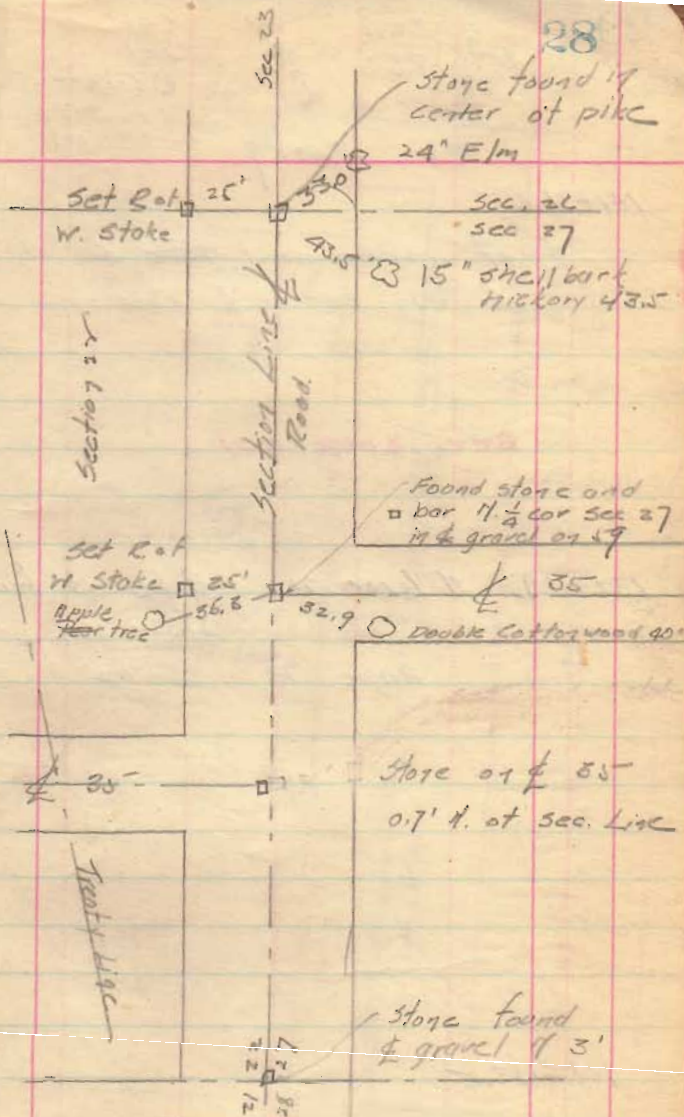 28
Sec 23
Stone found in
center of pike
24" Elm
Set R of
W. Stake
25'
Sec. 26
Sec 27
43.5'
15" shellbark
Hickory 43.5
Section 22
Section Line ℄
Road.
Found stone and
bar N. ¼ cor Sec 27
in ℄ gravel on 59
Set R of
W Stake
25'
℄ 35
Apple
tree
36.3
32.9
Double Cottonwood 40"
℄ 35
Stone on ℄ 35
0.7' N. of Sec. Line
Treaty Line
Stone found
℄ gravel N 3'
22 27
21 28